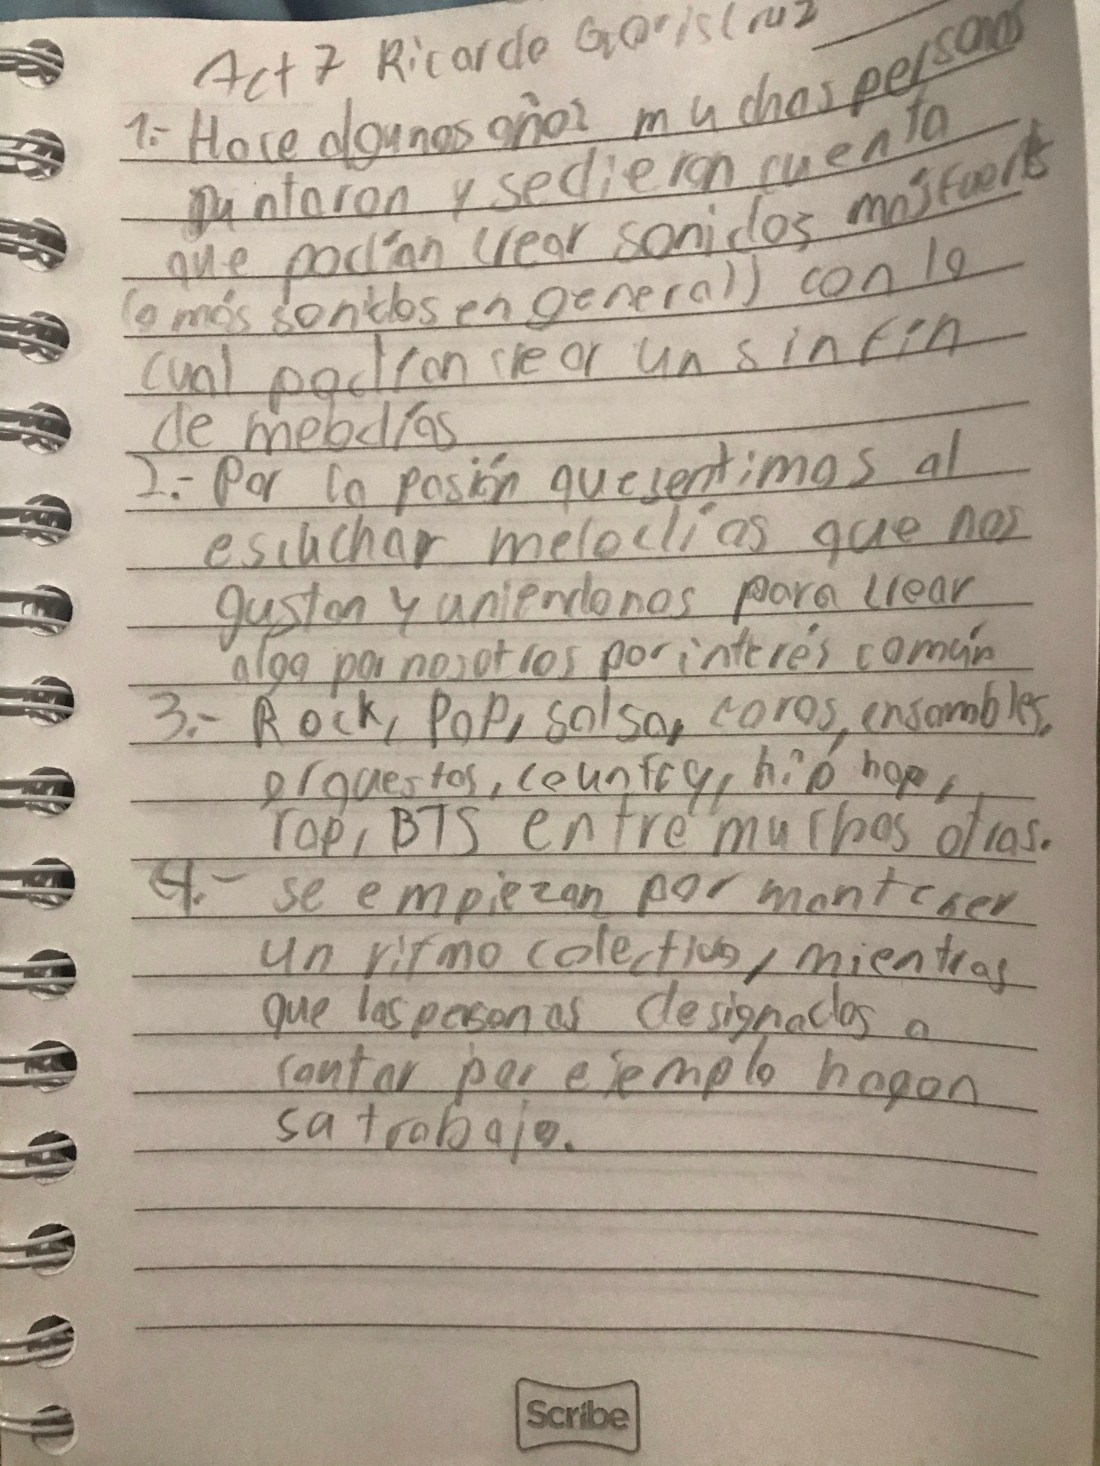 Act 7 Ricardo
1.- Hace algunos años muchas personas
juntaron y se dieron cuenta
que podían crear sonidos más fuerts
(o más sonidos en general)) con lo
cual podrían crear un sin fin
de melodías
2.- Por la pasión que sentimos al
escuchar melodías que nos
gustan y uniendonos para crear
algo por nosotros por interés común
3.- Rock, Pop, salsa, coros, ensambles,
orquestas, country, hip hop,
rap, BTS entre muchas otras.
4.- se empiezan por mantener
un ritmo colectivo, mientras
que las personas designadas a
cantar por ejemplo hagan
sa trabajo.
Scribe